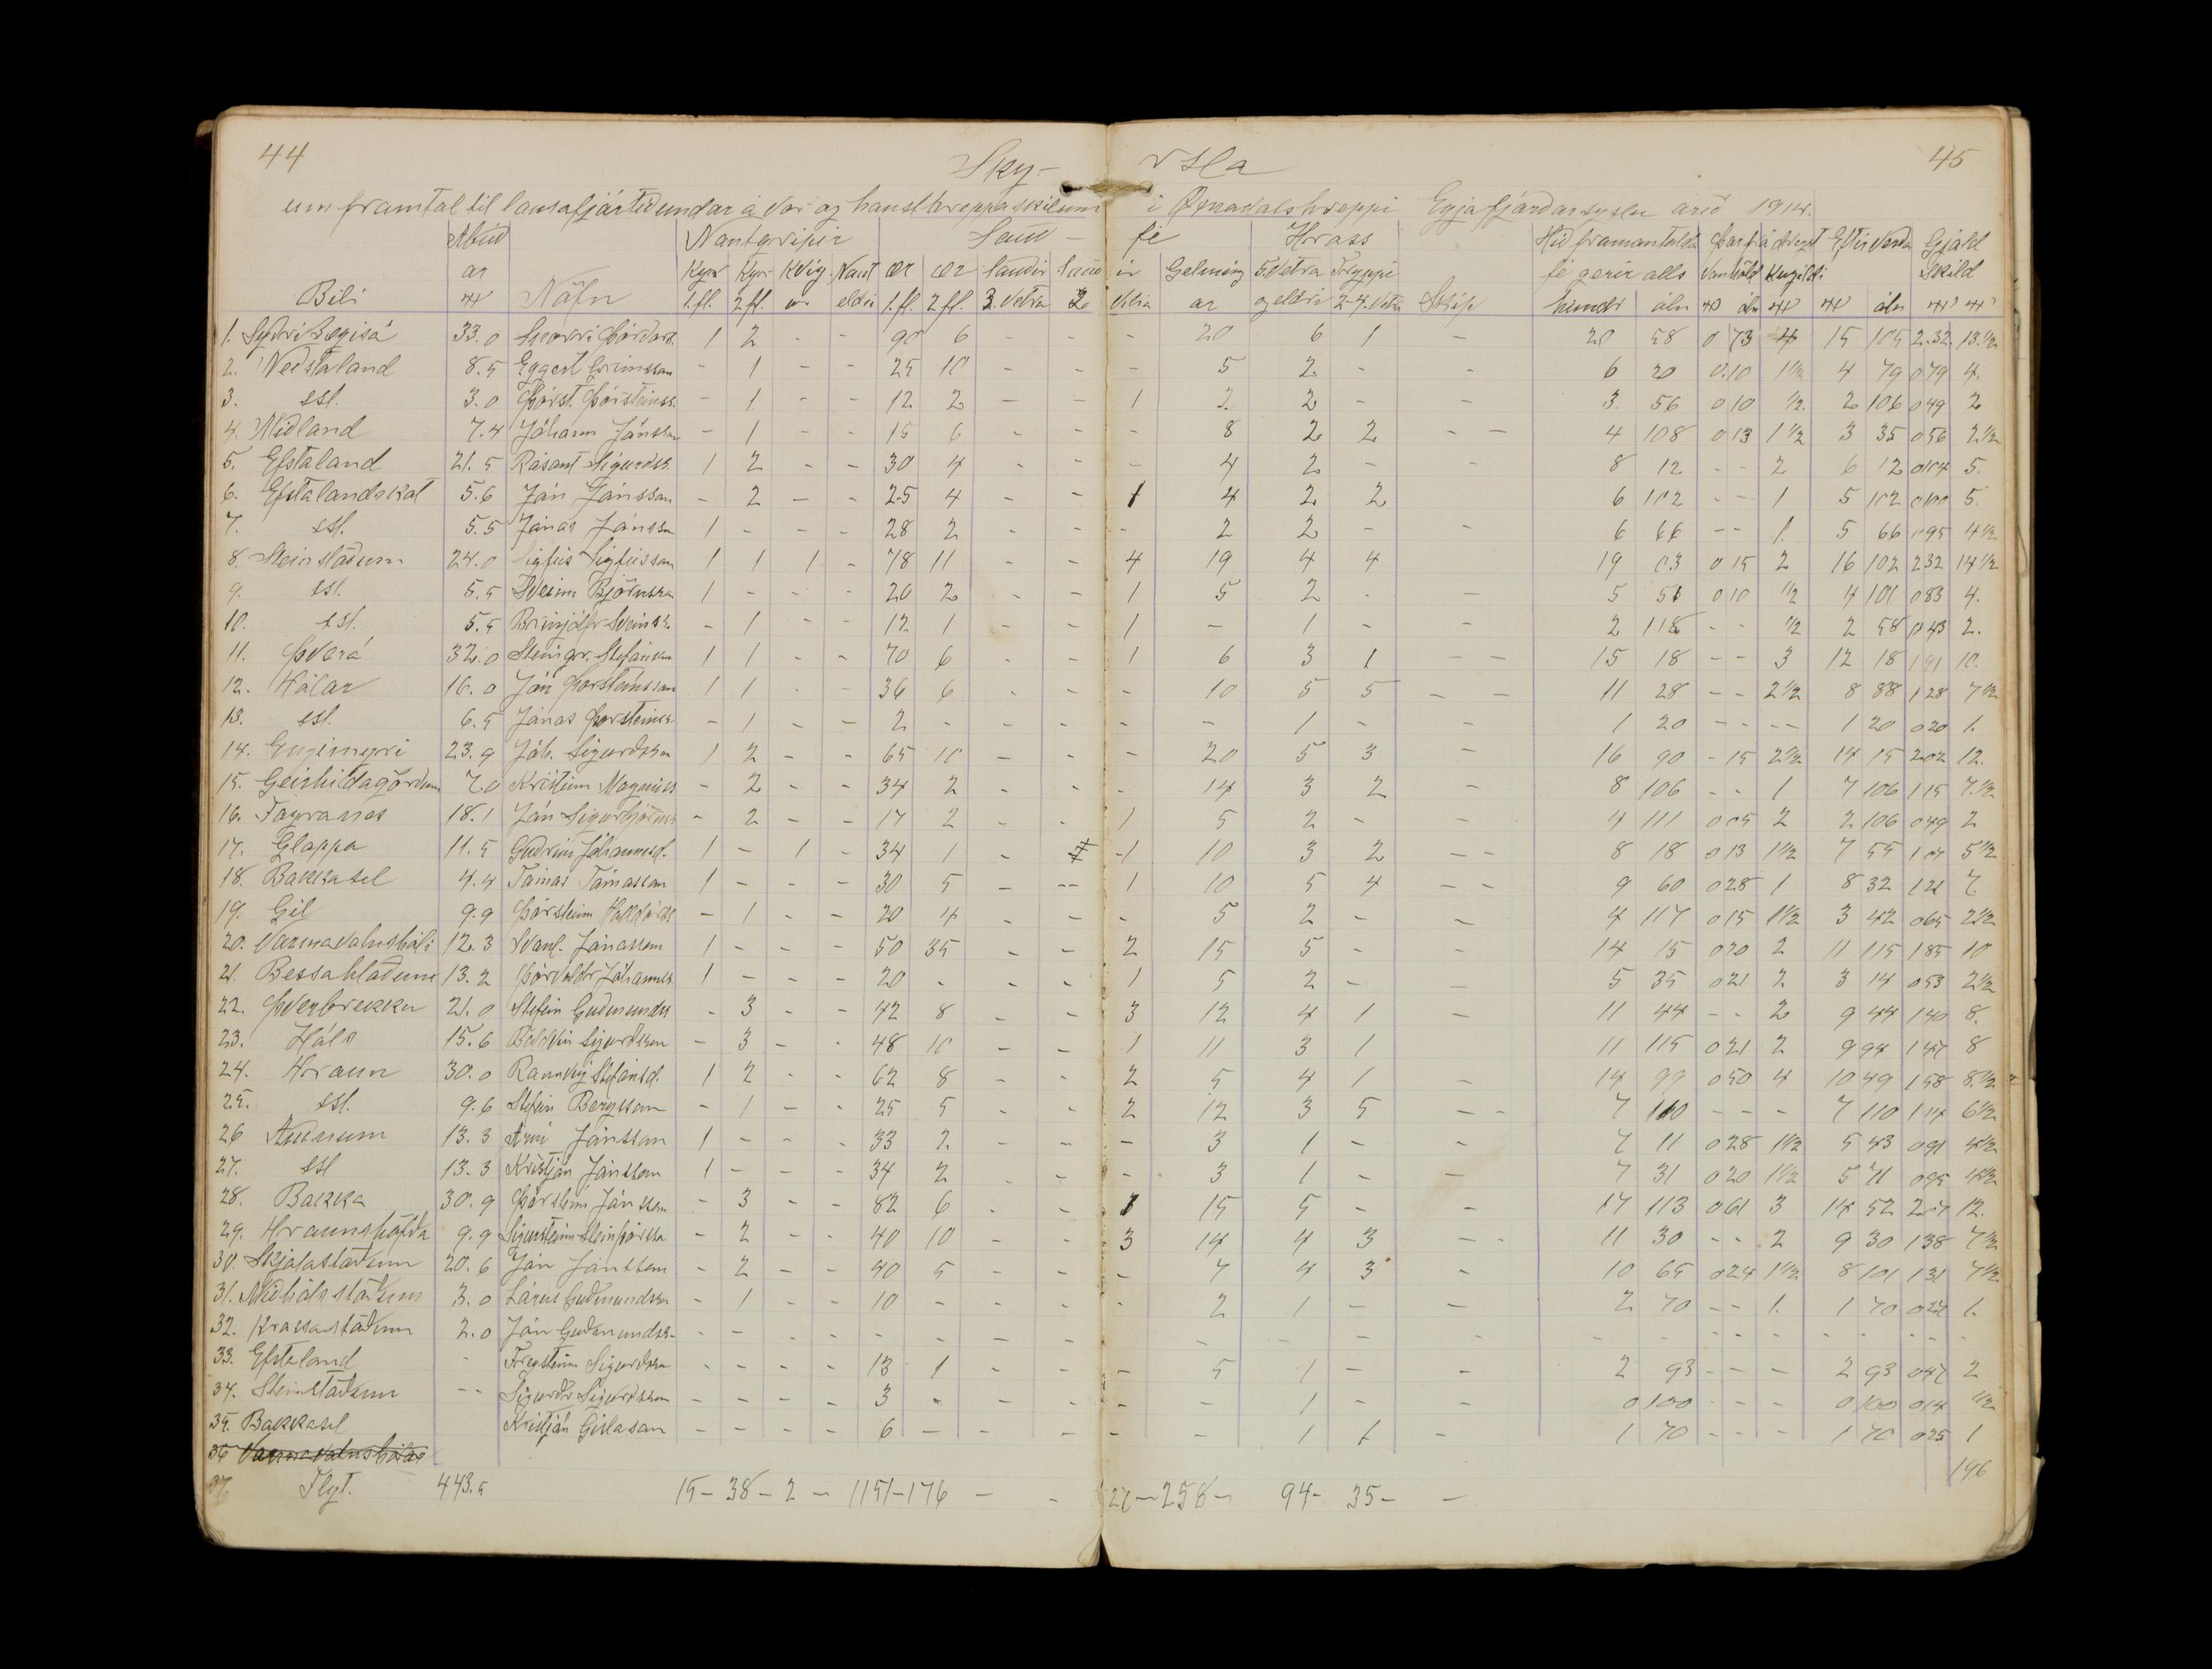 44 Sky- rsla 45
um framtal til lausafjártíundar á vor og haust hreppaskilum í Øxnadalshreppi Eyjafjarðarsýslu árið 1914.
Ábúð Nautgripir Sauð- fé Hross Hið framantalda Gjald
ar Kýr Kýr Kvíg Naut ær ær Sauðir ir Gelming 5.Vetra Tryppi fé gerir alls Kúgildi
Býli Nöfn 1.fl. 2 fl. ur eldri 1.fl. 2 fl. 3. Vetra 2 Vetra ar og eldri 2-4.Vetra Skip hundr áln
1. Syðri Bægisá 33.0 Snorri Þórðars. 1 2 - - 90 6 - - - 20 6 1 - 20 58 0 73 4 15 105 2.32. 13.1/2
2. Neðstaland 8.5 Eggert Grímsson - 1 - - 25 10 - - - 5 2 - - 6 20 0.10 1 1/2 4 79 0 79 4.
3. ssl. 3.0 Þórst. Þórsteinss. - 1 - - 12 2 - - 1 2 2 - - 3 56 0 10 1/2 2 106 0 49 2
4. Miðland 7.4 Jóhann Jónsson - 1 - - 15 6 - - - 8 2 2 - - 4 108 0 13 1 1/2 3 35 0 56 2.1/2
5. Efstaland 21.5 Rósant Sigurðss. 1 2 - - 30 4 - - - 4 2 - - 8 12 - - 2 6 12 0 104 5.
6. Efstalandskot 5.6 Ján Jánsson - 2 - - 25 4 - - 1 4 2 2 6 102 - - 1 5 102 0 100 5.
7. ssl. 5.5 Jónas Jónsson 1 - - - 28 2 - - - 2 2 - - 6 66 - - 1. 5 66 0 95 4 1/2
8. Steinstöðum 24.0 Sigfús Sigfússon 1 1 1 - 78 11 - - 4 19 4 4 19 03 0 15 2 16 102 2 32 14 1/2
9. ssl. 5.5 Sveinn Björnsson 1 - - - 20 2 - - 1 5 2 - - 5 51 0 10 1/2 4 101 0 83 4.
10. ssl. 5.5 Brinjólfr Sveinss. - 1 - - 12 1 - - 1 - 1 - - 2 118 - - 1/2 2 58 0 43 2.
11. Þverá 32.0 Steingr. Stefánsson 1 1 - - 70 6 - - 1 6 3 1 - - 15 18 - - 3 12 18 1 91 10.
12. Hólar 16.0 Ján Þorsteinsson 1 1 - - 36 6 - - - 10 5 5 - - 11 28 - - 2 1/2 8 88 1 28 7 1/2
13. ssl. 6.5 Jónas Þorsteinss - 1 - - 2 - - - - - 1 - - 1 20 - - - - 1 20 0 20 1.
14. Engimýri 23.9 Jóh. Sigurðsson 1 2 - - 65 10 - - - 20 5 3 - 16 90 - 15 2 1/2 14 15 2.02 12.
15. Geirhildagörðum 7.0 Kristinn Magnúss - 2 - - 34 2 - - - 14 3 2 - 8 106 - - 1 7 106 1 15 7.1/2
16. Fagranes 18.1 Ján Sigurbjörnss - 2 - - 17 2 - - 1 5 2 - - 4 111 0 05 2 2 106 0 49 2
17. Gloppa 11.5 Guðrún Jóhannesd. 1 - 1 - 34 1 - -1 10 3 2 - - 8 18 0 13 1 1/2 7 55 1 07 5 1/2
18. Bakkasel 4.4 Tómas Tómasson 1 - - - 30 5 - -- 1 10 5 4 - - 9 60 0 28 1 8 32 1 21 7.
19. Gil 9.9 Þórsteinn Halldórss - 1 - - 20 4 - - - 5 2 - - 4 117 0 15 1 1/2 3 42 0 65 2 1/2
20. Varmavatnshóli 12.3 Svanl. Jónasson 1 - - - 50 35 - - 2 15 5 - - 14 15 0 20 2 11 115 1 85 10
21. Bessahlöðum 13.2 Þórvaldr Jóhanness 1 - - - 20 - - - 1 5 2 - - 5 35 0 21 2 3 14 0 53 2 1/2
22. Þverbrekku 21.0 Stefán Guðmundss - 3 - - 42 8 - - 3 12 4 1 - 11 44 - - 2 9 44 1 40 8.
23. Háls 15.6 Baldvin Sigurðsson - 3 - - 48 10 - - 1 11 3 1 11 115 0 21 2 9 94 1 47 8
24. Hraun 30.0 Rannveig Stefánsd. 1 2 - - 62 8 - - 2 5 4 1 - 14 99 0 50 4 10 49 1 58 8.1/2
25. ssl. 9.6 Stefán Bergsson - 1 - - 25 5 - - 2 12 3 5 - - 7 110 - - - 7 110 1 14 6 1/2
26 Auðnum 13.3 Árni Jónsson 1 - - - 33 2 - - - 3 1 - - 7 11 0 28 1 1/2 5 43 0 91 4 1/2
27. ssl 13.3 Kristján Jónsson 1 - - - 34 2 - - - 3 1 - - 7 31 0 20 1 1/2 5 71 0 95 4 1/2
28. Bakka 30.9 Þórsteinn Jónsson - 3 - - 82 6 - - 1 15 5 - - 17 113 0 61 3 14 52 2 07 12.
29. Hraunshöfða 9.9 Sigursteinn Steinþórss - 2 - - 40 10 - - 3 14 4 3 - - 11 30 - - 2 9 30 1 38 7 1/2
30. Skjaldastöðum 20.6 Ján Jónsson - 2 - - 40 5 - - - 7 4 3 - 10 65 0 24 1 1/2 8 101 1 31 7 1/2
31. Miðhálsstöðum 3.0 Lárus Guðmundsson - 1 - - 10 - - - - 2 1 - - 2 70 - - 1. 1 70 0 27 1.
32. Krossastöðum 2.0 Ján Guðmundss - - - - - - - - - - - - - - - - - - - - - -
33. Efstaland - Freysteinn Sigurðsson - - - - 13 1 - - - 5 1 - - 2 93 - - - 2 93 0 47 2
34. Steinstöðum -- Sigurðr Sigurðsson - - - - 3 - - - - - 1 - - 0 100 - - - 0 100 0 14 1/2
35. Bakkasel Kristján Gíslason - - - - 6 - - - - - 1 1 - 1 70 - - - 1 70 0 25 1
36 Varmavatnshólar
196
Flyt. 443.5 15 - 38 - 2 - 1151 - 176 - - 27 - 258 - 94 - 35 - -